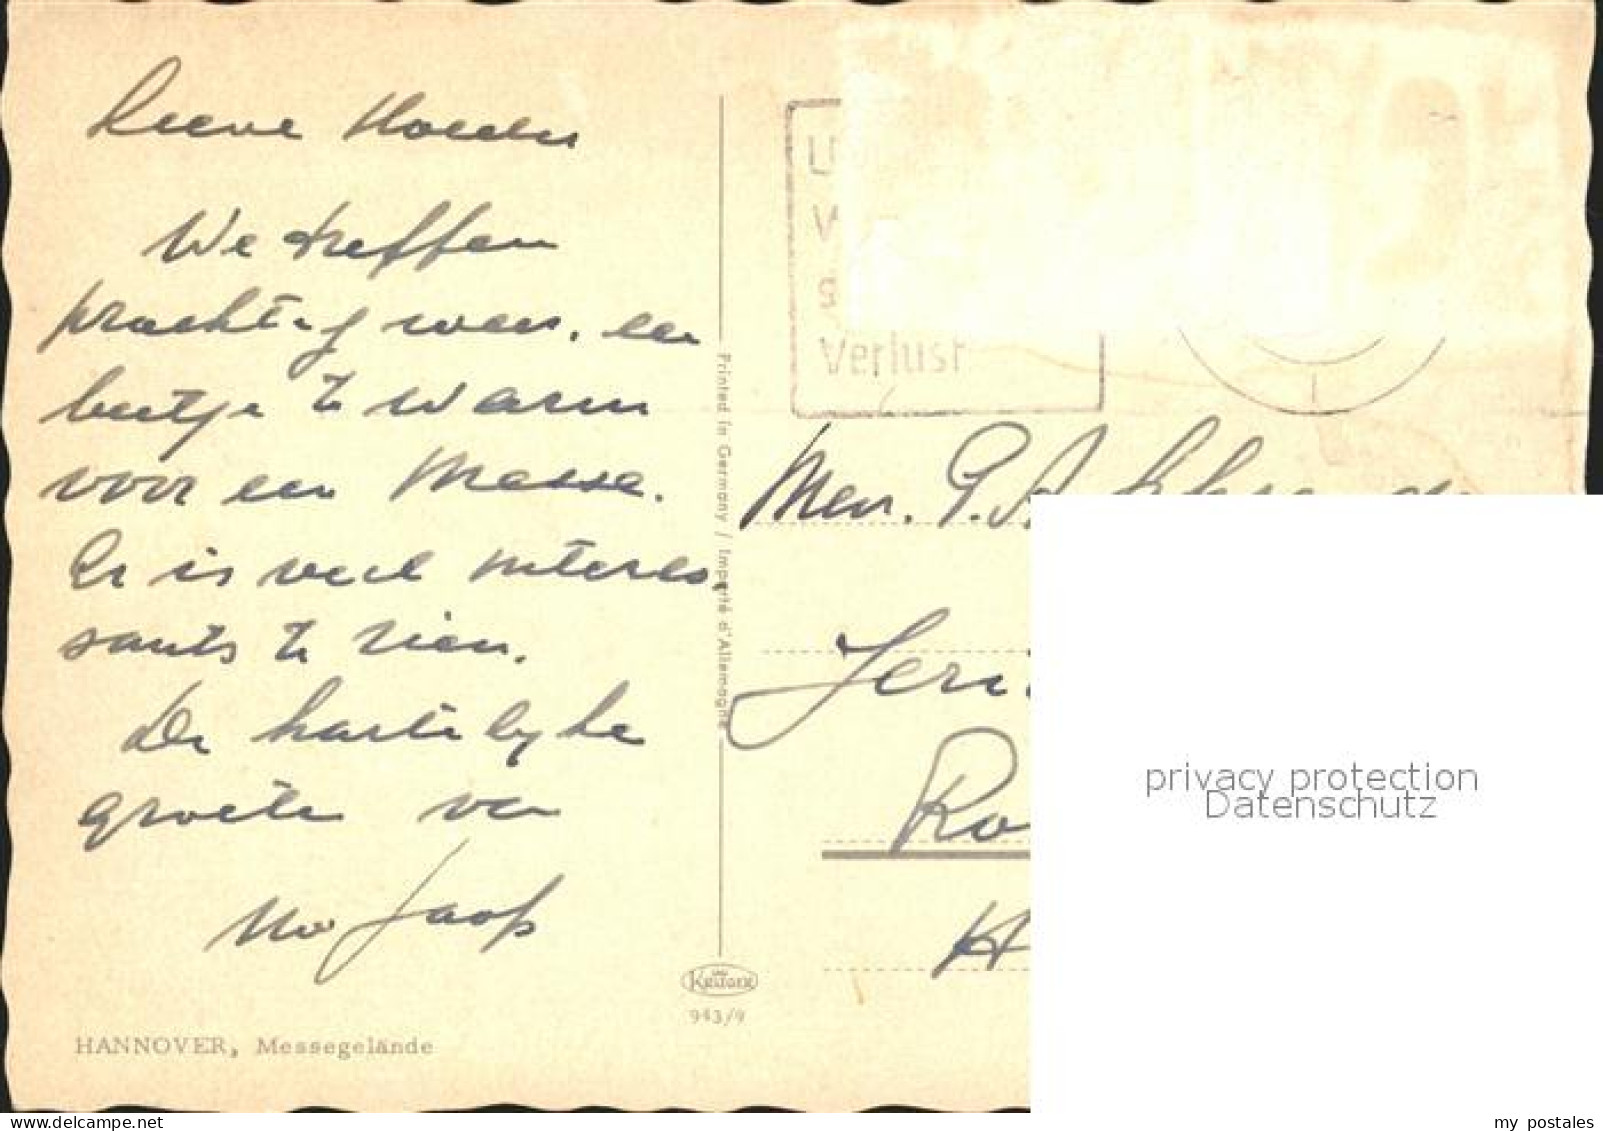 Lieve Moeder
We treffen
prachtig weer. een
beetje te warm
voor een Messe.
Er is veel interes
sants te zien.
De hartelijke
groeten van
Uw Jaap
HANNOVER, Messegelände
Printed in Germany / Importé d'Allemagne
KRÜGER
943/9
Verlust
Mevr. P.A.
privacy protection
Datenschutz
my postales
delcampe.net